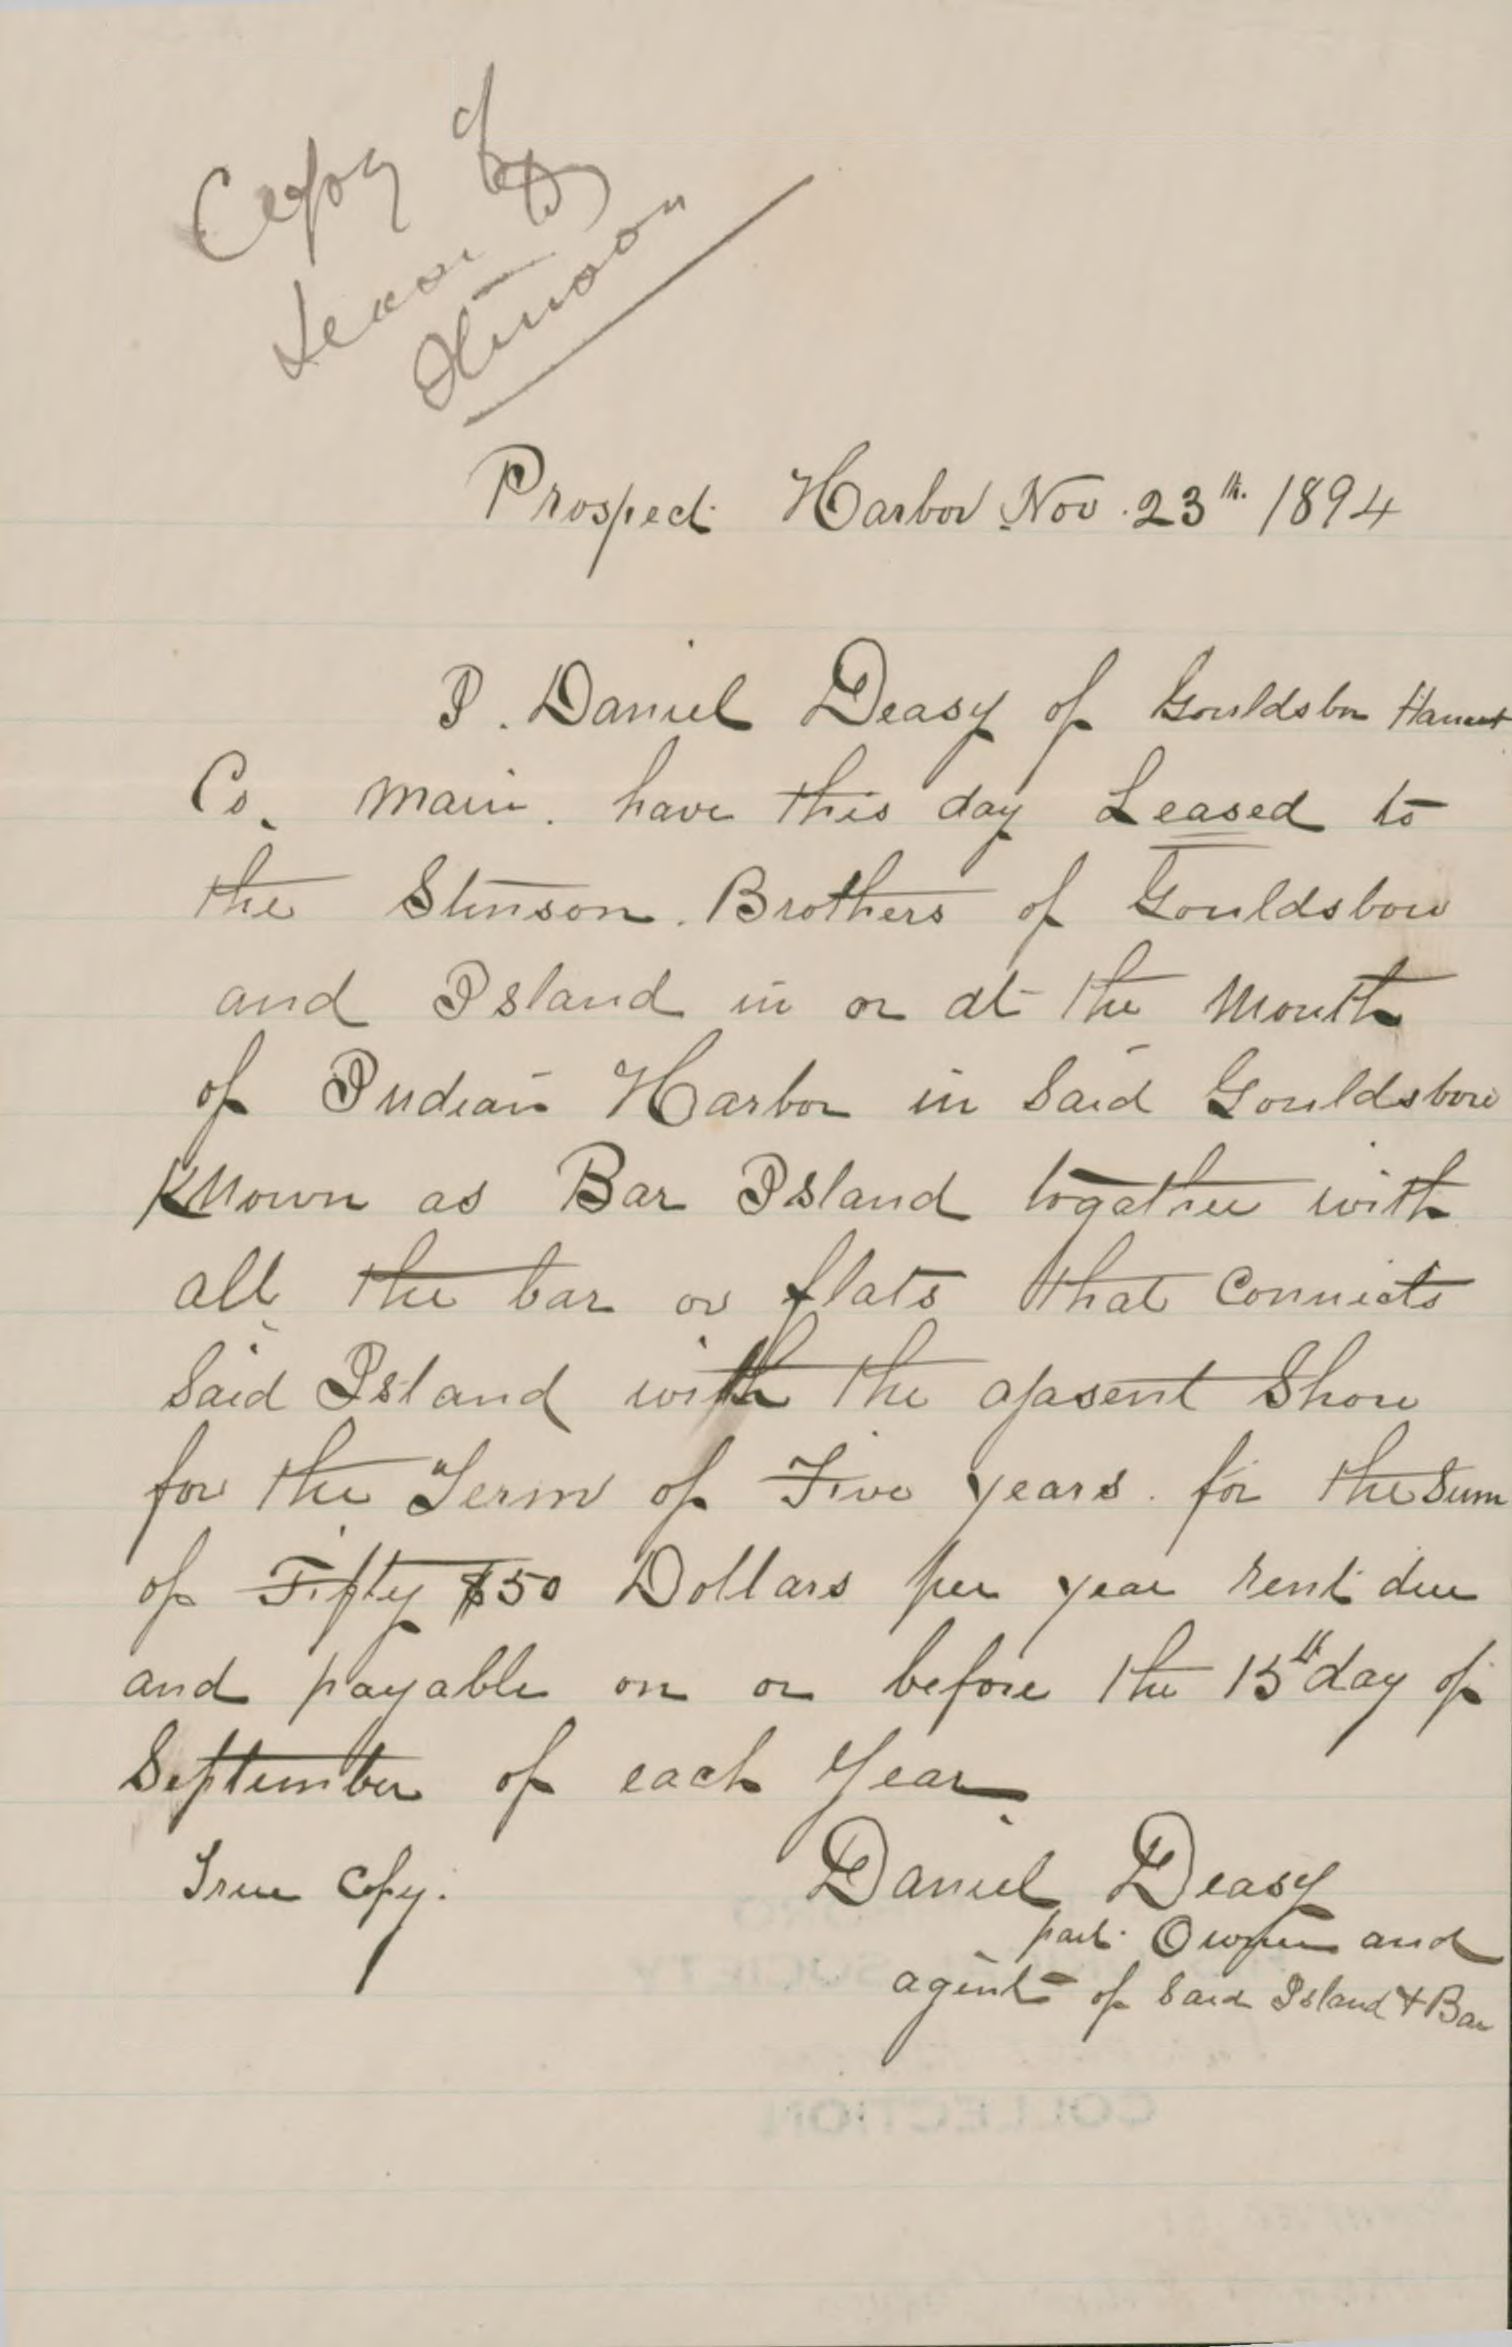 Copy of
Lease to
Stinson
Prospect Harbor Nov. 23th. 1894
I. Daniel Deasy of Gouldsbor
Co. Main. have this day Leased to
the Stinson. Brothers of Gouldsboro
and Island in or at the Mouth
of Indian Harbor in Said Gouldsboro
Known as Bar Island togather with
all the bar or flats that Connects
Said Island with the ajasent Shore
for the Term of Five years. for the Sum
of Fifty $50 Dollars per year rent due
and payable on or before the 15th day of
September of each Year
True Copy.
Daniel Deasy
part Owner and
agent of Said Island & Bar
COLLECTION